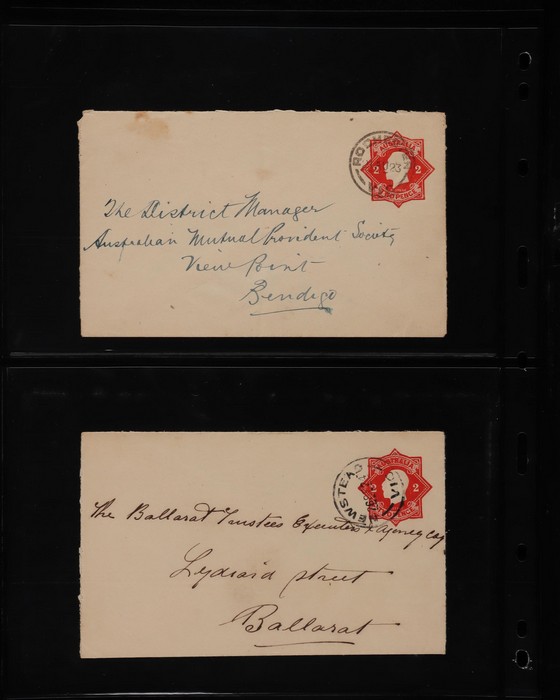 AUSTRALIA
2 2
TWO PENCE
The District Manager
Australian Mutual Provident Society
View Point
Bendigo
AUSTRALIA
2
NEWSTEAD
VIC
The Ballarat Trustees Executors & Agency Coy
Lydiard street
Ballarat